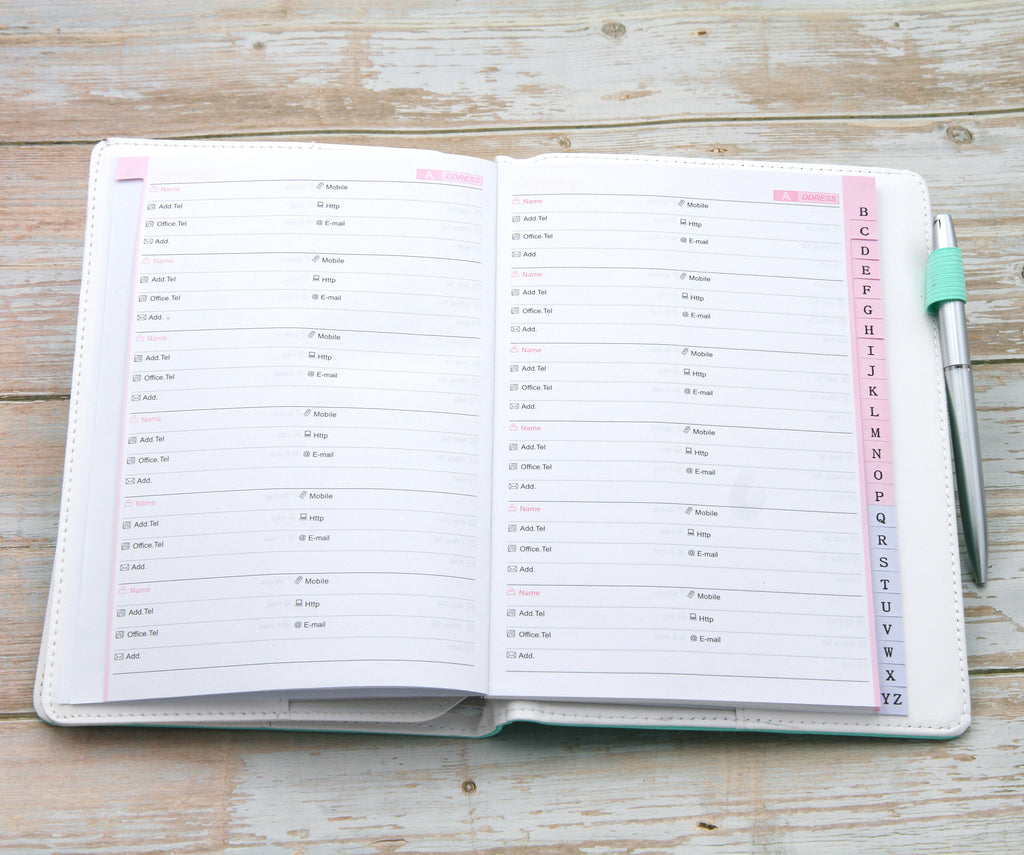 A DDRESS
Name Mobile
Add.Tel Http
Office.Tel @ E-mail
Add.
Name Mobile
Add.Tel Http
Office.Tel @ E-mail
Add.
Name Mobile
Add.Tel Http
Office.Tel @ E-mail
Add.
Name Mobile
Add.Tel Http
Office.Tel @ E-mail
Add.
Name Mobile
Add.Tel Http
Office.Tel @ E-mail
Add.
Name Mobile
Add.Tel Http
Office.Tel @ E-mail
Add.
A DDRESS
Name Mobile
Add.Tel Http
Office.Tel @ E-mail
Add.
Name Mobile
Add.Tel Http
Office.Tel @ E-mail
Add.
Name Mobile
Add.Tel Http
Office.Tel @ E-mail
Add.
Name Mobile
Add.Tel Http
Office.Tel @ E-mail
Add.
Name Mobile
Add.Tel Http
Office.Tel @ E-mail
Add.
Name Mobile
Add.Tel Http
Office.Tel @ E-mail
Add.
B
C
D
E
F
G
H
I
J
K
L
M
N
O
P
Q
R
S
T
U
V
W
X
YZ